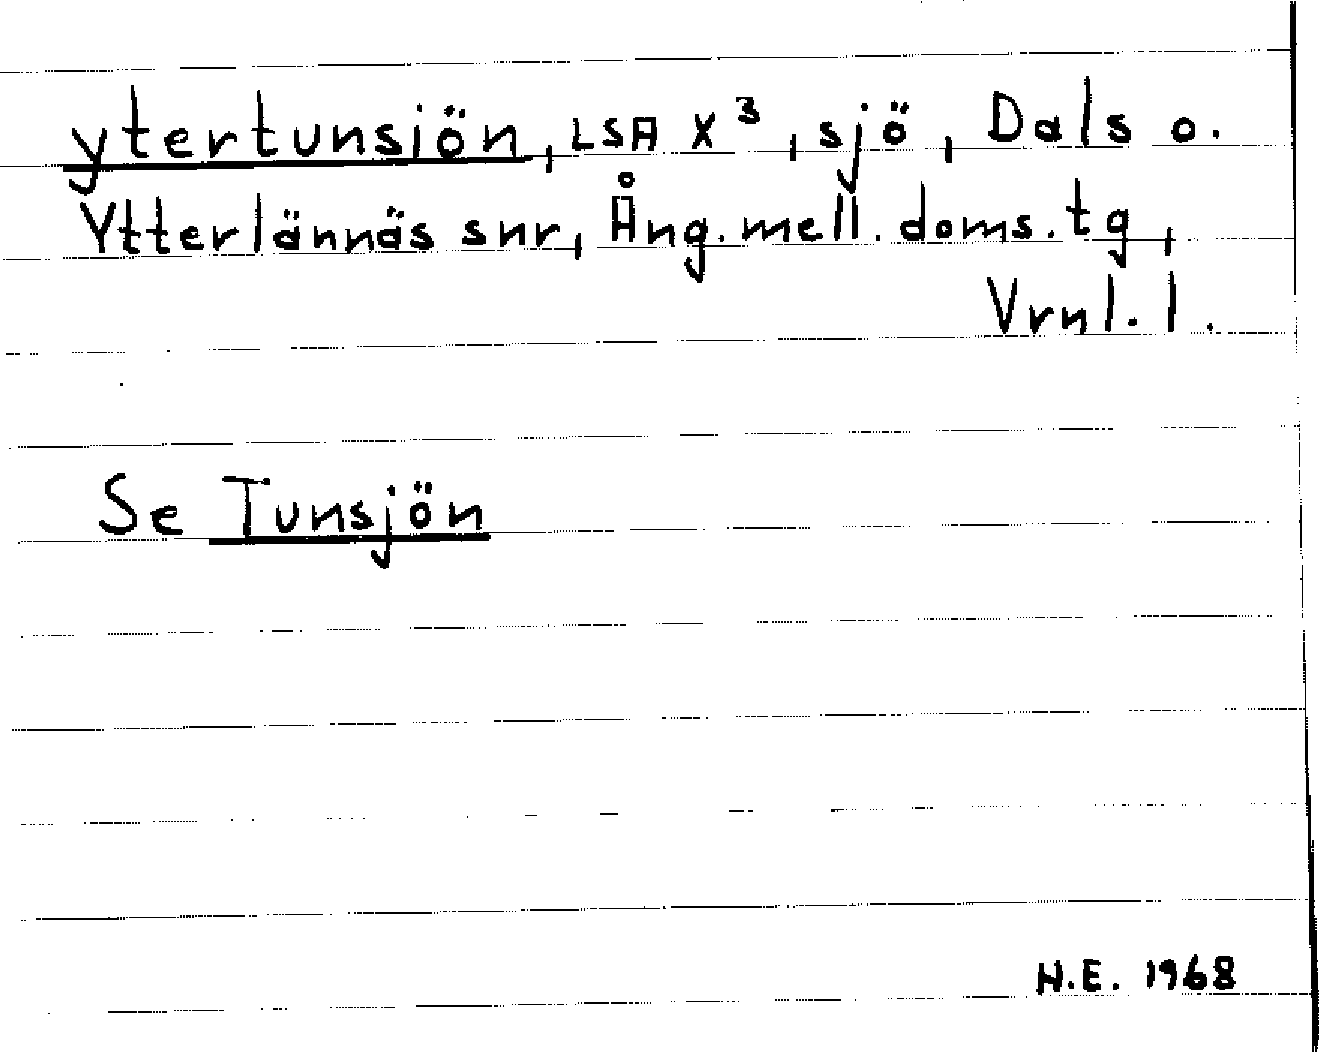 ytertunsiön, LSA X³, sjö, Dals o.
Ytterlännäs snr, Ång. mell. doms. tg,
Vrnl. l.
Se Tunsjön
H.E. 1968